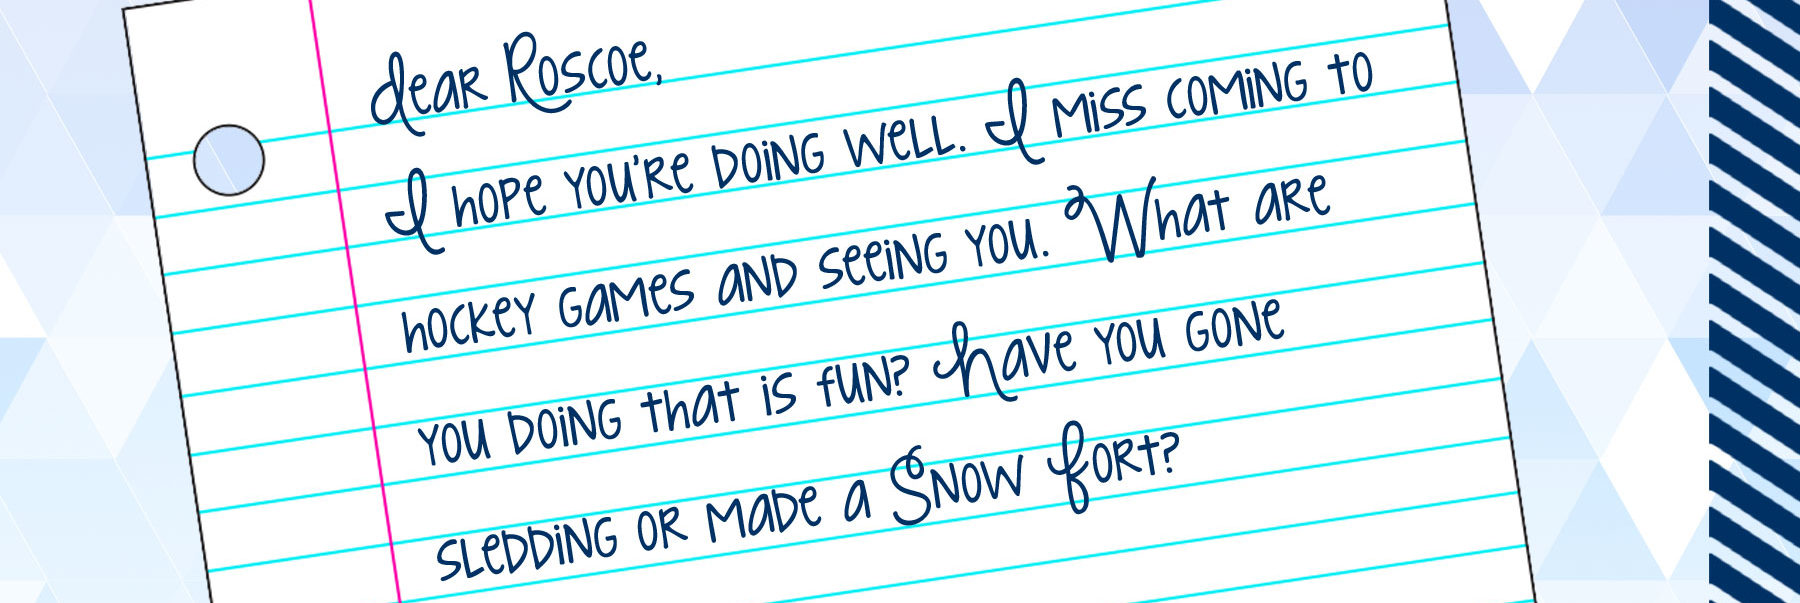 dear Roscoe,
I hope you're doing well. I miss coming to
hockey games and seeing you. What are
you doing that is fun? Have you gone
sledding or made a Snow Fort?